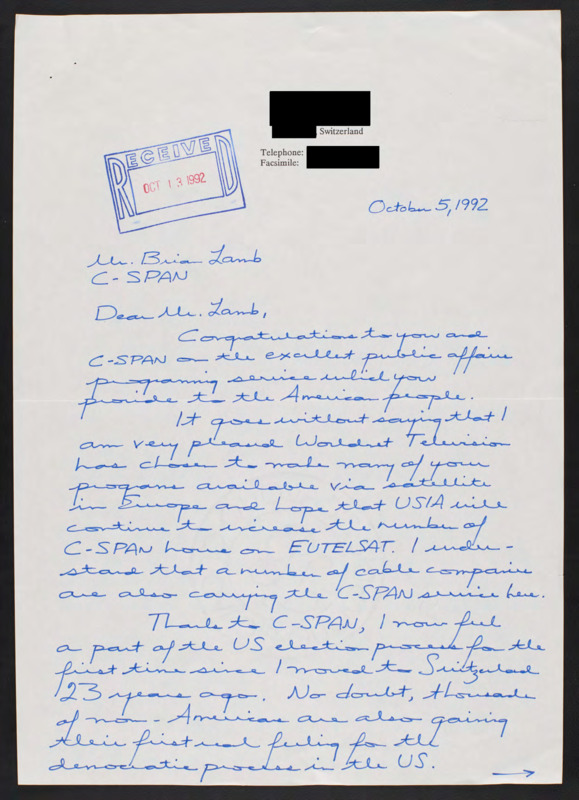 Switzerland
Telephone:
Facsimile:
RECEIVED
OCT 13 1992
October 5, 1992
Mr. Brian Lamb
C-SPAN
Dear Mr. Lamb,
Congratulations to you and
C-SPAN on the excellent public affairs
programing service which you
provide to the American people.
It goes without saying that I
am very pleased Worldnet Television
has chosen to make many of your
programs available via satellite
in Europe and hope that USIA will
continue to increase the number of
C-SPAN hours on EUTELSAT. I under-
stand that a number of cable companies
are also carrying the C-SPAN service here.
Thanks to C-SPAN, I now feel
a part of the US election process for the
first time since I moved to Switzerland
23 years ago. No doubt, thousands
of non-Americans are also gaining
their first real feeling for the
democratic process in the US.
→